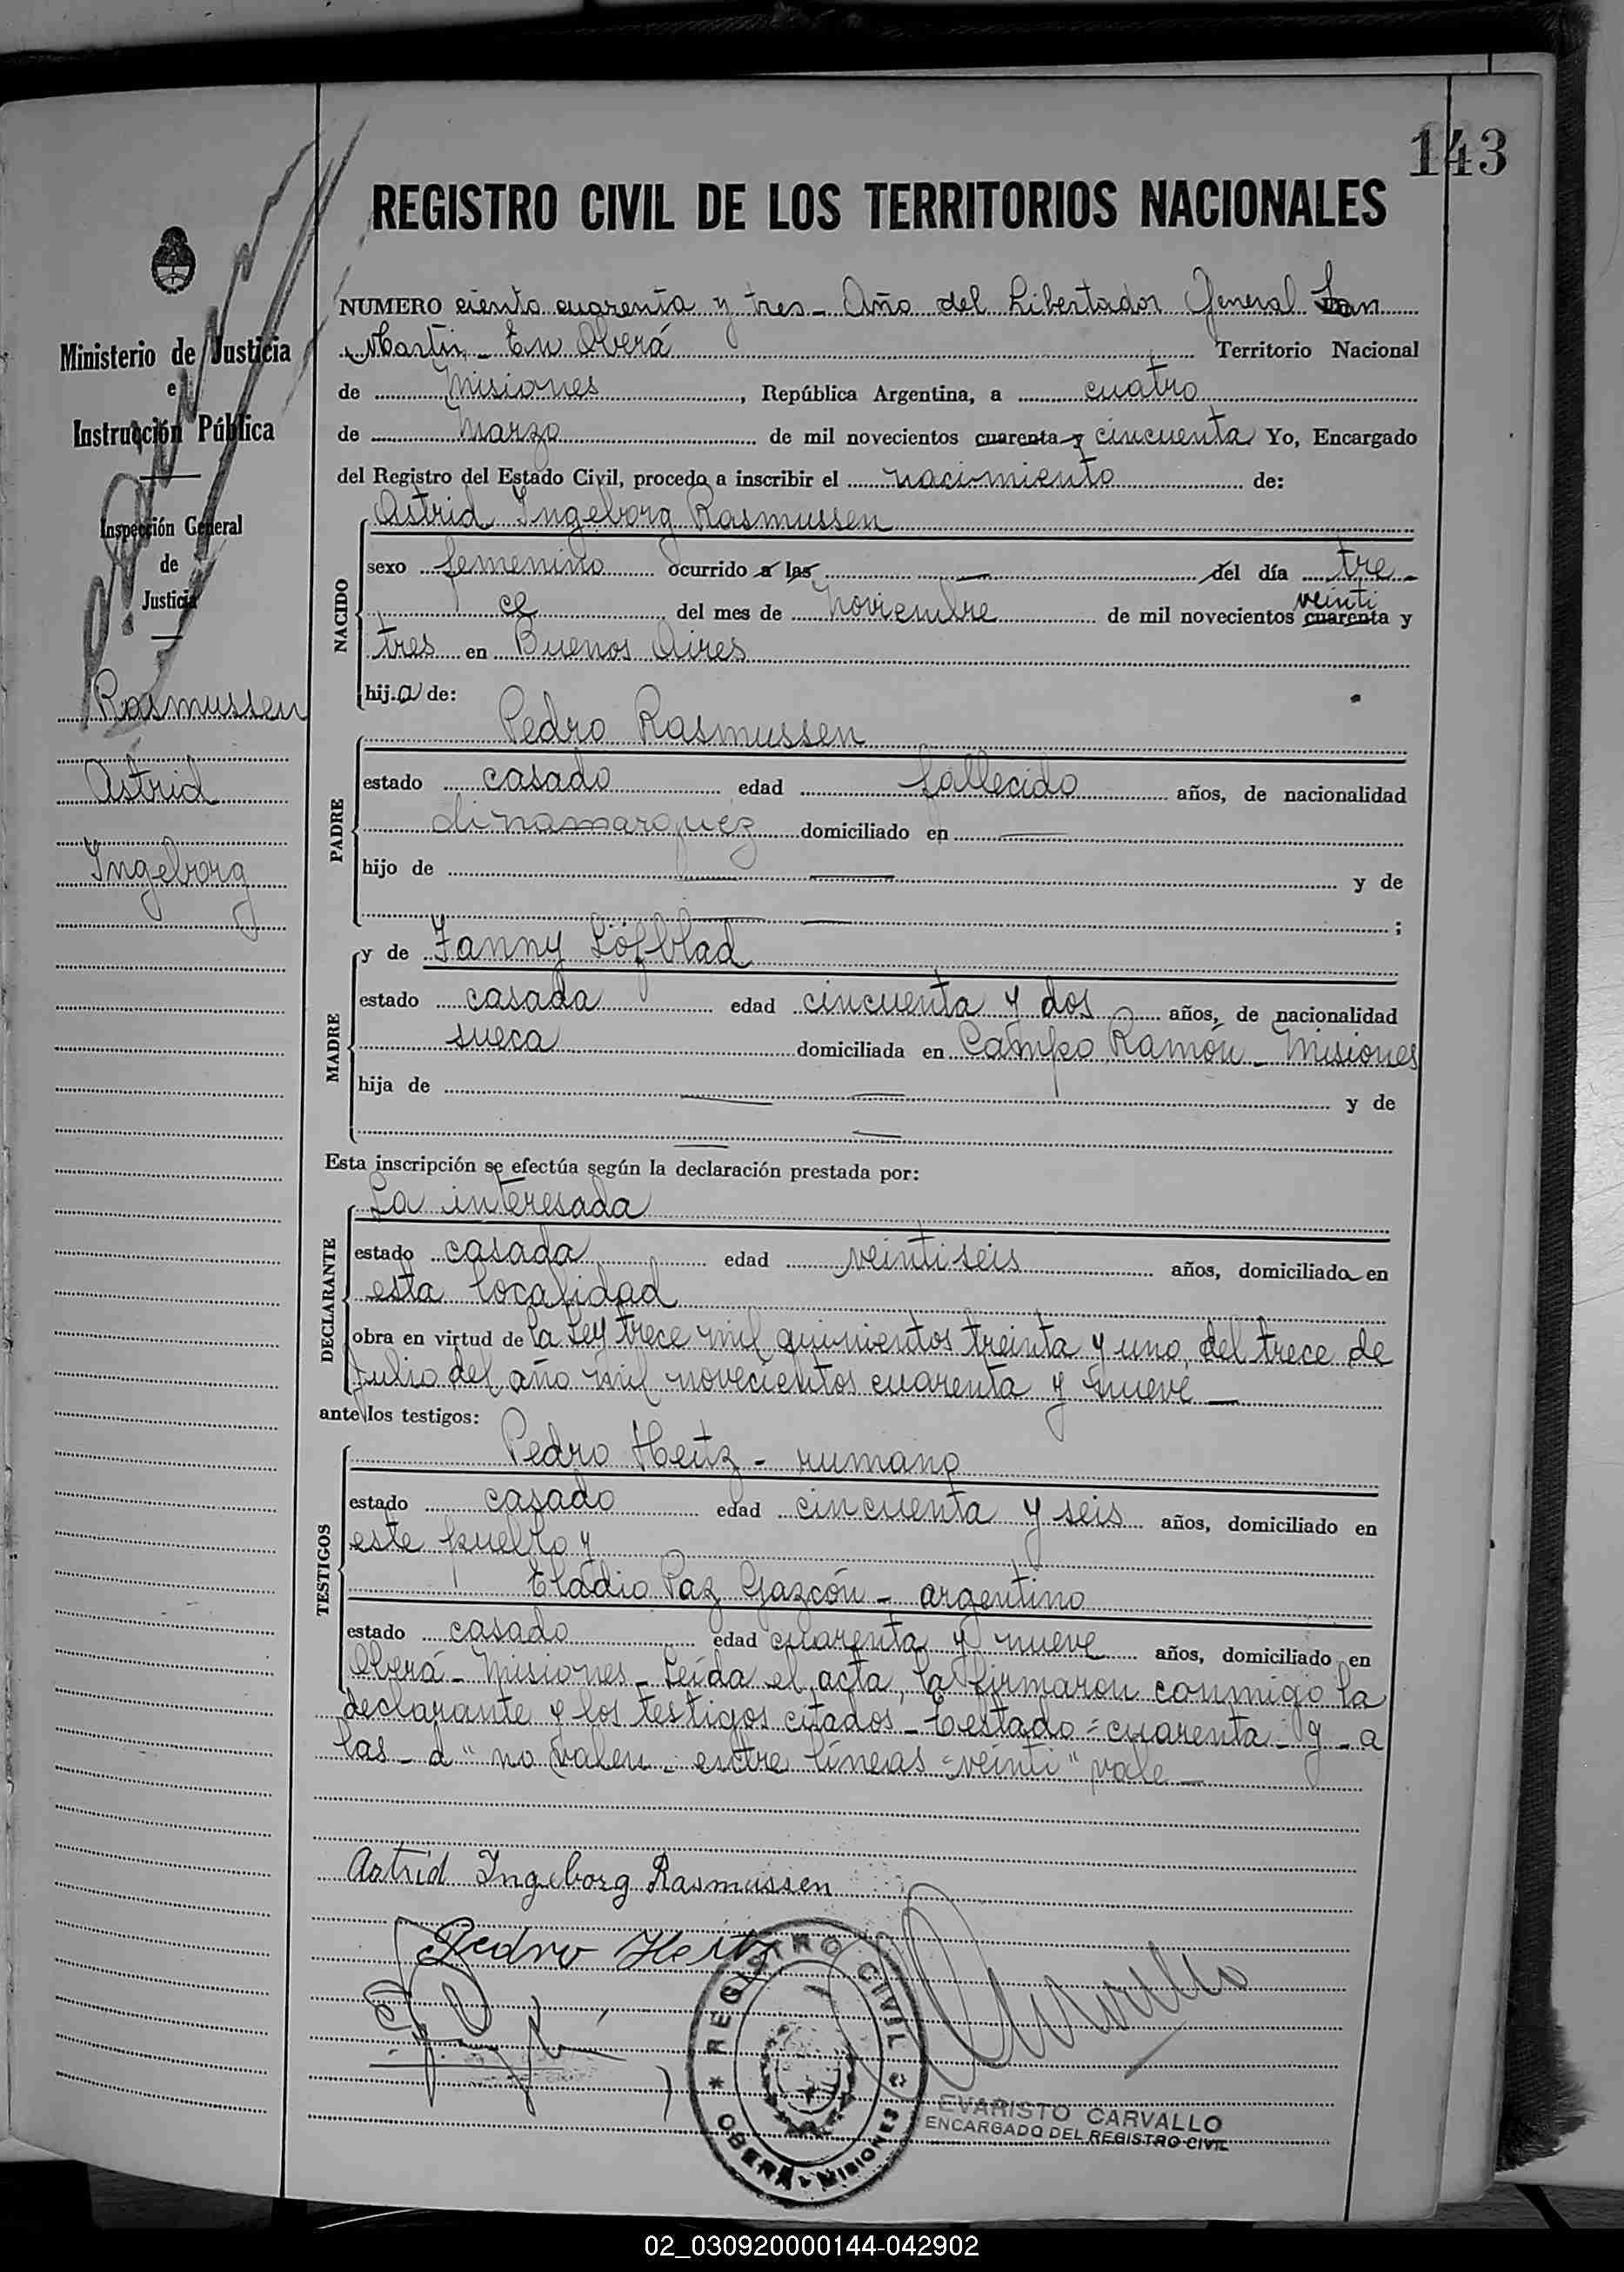 143
REGISTRO CIVIL DE LOS TERRITORIOS NACIONALES
Ministerio de Justicia
e
Instrucción Pública
Inspección General
de
Justicia
Rasmussen
Astrid
Ingeborg
NUMERO ciento cuarenta y tres - Año del Libertador General San
Martín - En Oberá Territorio Nacional
de Misiones, República Argentina, a cuatro
de Marzo de mil novecientos cuarenta y cincuenta Yo, Encargado
del Registro del Estado Civil, procedo a inscribir el nacimiento de:
NACIDO
Astrid Ingeborg Rasmussen
sexo femenino ocurrido a las — del día tre-
ce del mes de Noviembre de mil novecientos cuarenta y
veinti
tres en Buenos Aires
hij.a de:
PADRE
Pedro Rasmussen
estado casado edad fallecido años, de nacionalidad
dinamarquez domiciliado en —
hijo de — y de
— ;
MADRE
y de Fanny Löfblad
estado casada edad cincuenta y dos años, de nacionalidad
sueca domiciliada en Campo Ramón - Misiones
hija de — y de
—
Esta inscripción se efectúa según la declaración prestada por:
DECLARANTE
La interesada
estado casada edad veintiseis años, domiciliada en
esta localidad
obra en virtud de la Ley trece mil quinientos treinta y uno, del trece de
Julio del año mil novecientos cuarenta y nueve —
ante los testigos:
TESTIGOS
Pedro Heitz - rumano
estado casado edad cincuenta y seis años, domiciliado en
este pueblo y
Eladio Paz Gazcón - argentino
estado casado edad cuarenta y nueve años, domiciliado en
Oberá - Misiones - Leída el acta, la firmaron conmigo la
declarante y los testigos citados - Testado = cuarenta - y - a
las - d" no valen - entre líneas = veinti" vale —
Astrid Ingeborg Rasmussen
Pedro Heitz
Carvallo
REGISTRO CIVIL
OBERÁ - MISIONES
EVARISTO CARVALLO
ENCARGADO DEL REGISTRO CIVIL
02_030920000144-042902